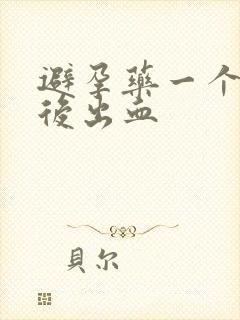 避孕藥一个
後出血
貝尔